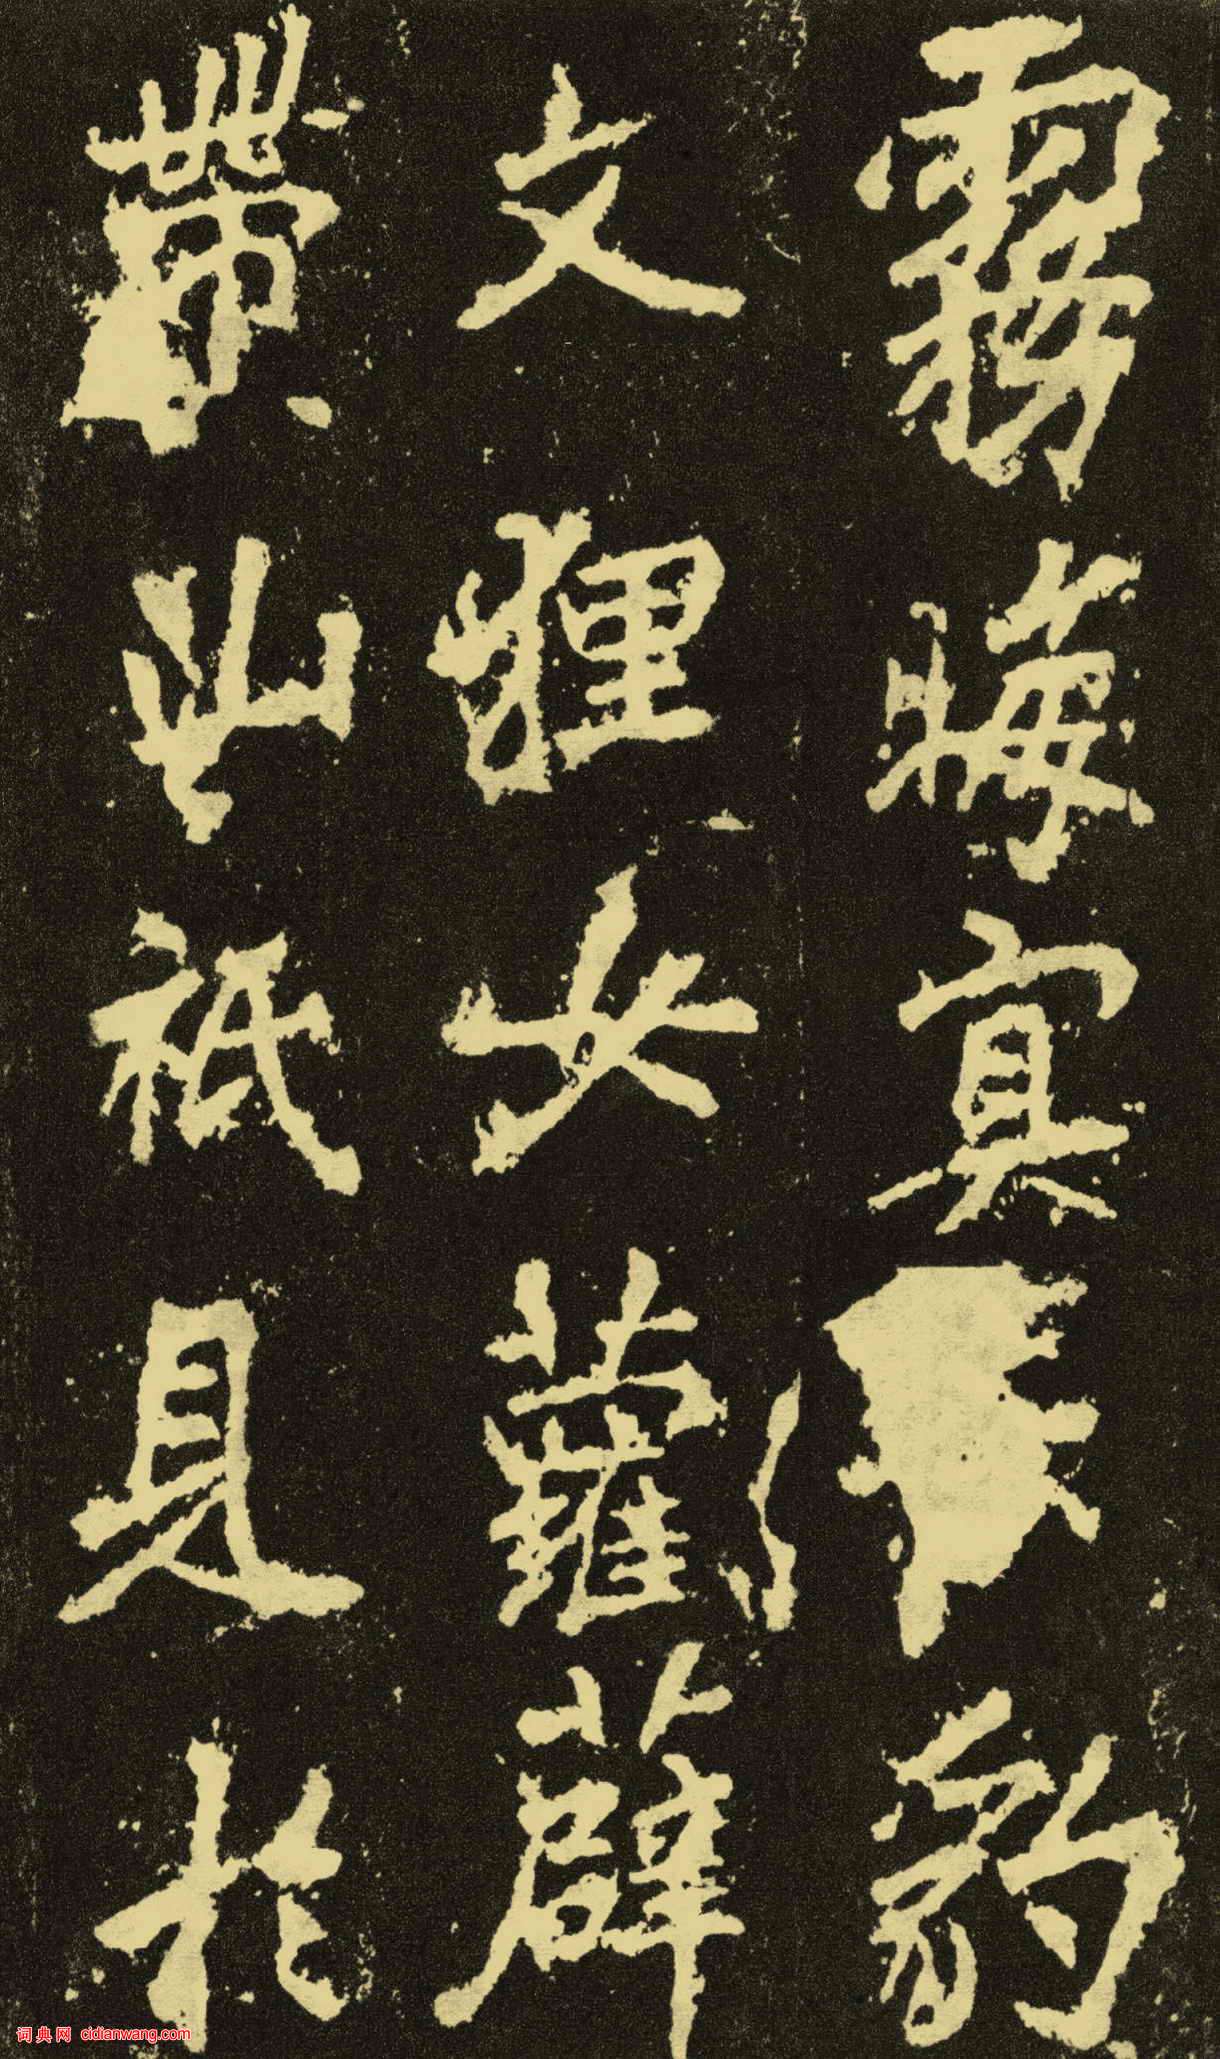 霧晦冥豹
文狸女蘿薜
帶山祇見於
词典网 cidianwang.com